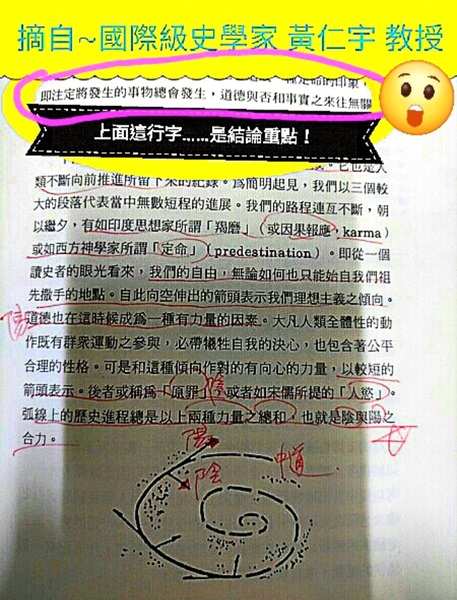 摘自~國際級史學家 黃仁宇 教授
定命的印象，
即注定將發生的事物總會發生，道德與否和事實之來往無關
上面這行字......是結論重點！
它也是人
類不斷向前推進所留下來的紀錄。爲簡明起見，我們以三個較
大的段落代表當中無數短程的進展。我們的路程連亙不斷，朝
以繼夕，有如印度思想家所謂「羯磨」（或因果報應，karma）
或如西方神學家所謂「定命」（predestination）。即從一個
讀史者的眼光看來，我們的自由，無論如何也只能始自我們祖
先撒手的地點。自此向空伸出的箭頭表示我們理想主義之傾向。
陽
道德也在這時候成爲一種有力量的因素。大凡人類全體性的動
作既有群衆運動之參與，必帶犧牲自我的決心，也包含著公平
合理的性格。可是和這種傾向作對的有向心的力量，以較短的
箭頭表示。後者或稱爲「原罪」或者如宋儒所提的「人慾」。
陰
弧線上的歷史進程總是以上兩種力量之總和，也就是陰與陽之
合力。
陽
陰
中道